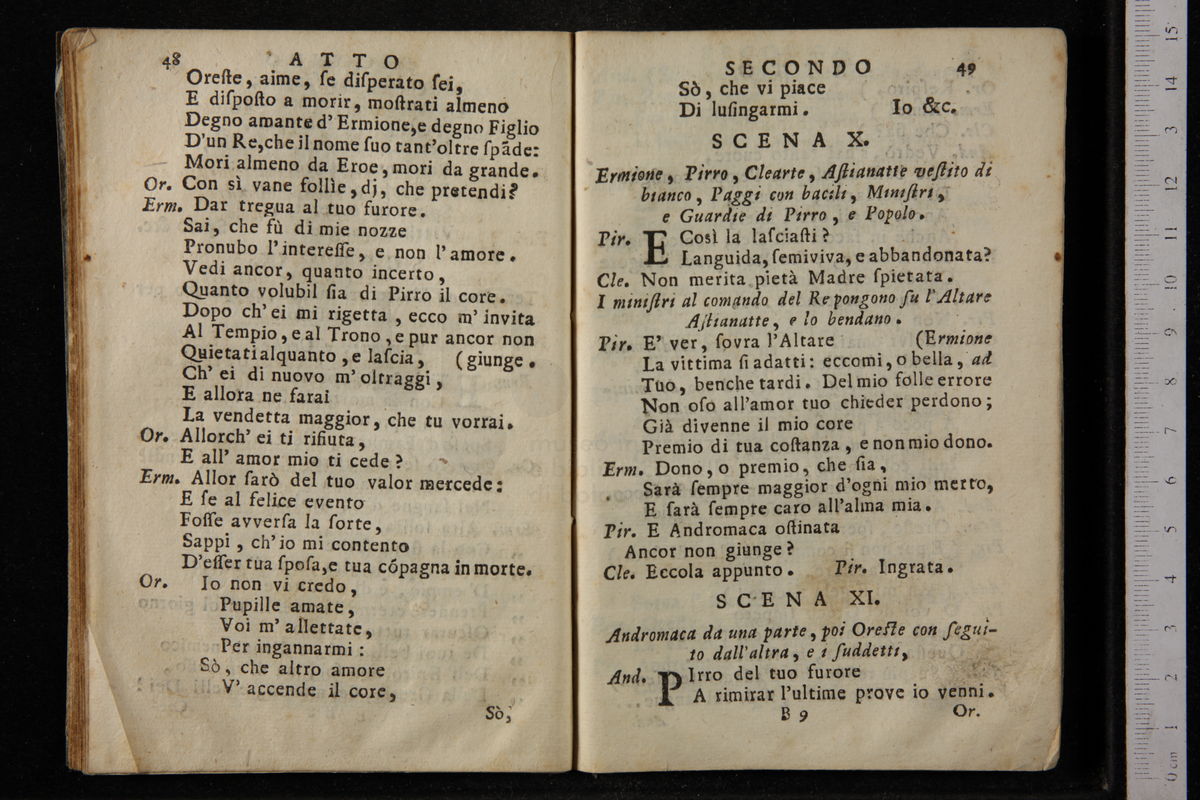 48 ATTO
Oreſte, aime, ſe diſperato ſei,
E diſpoſto a morir, moſtrati almeno
Degno amante d' Ermione, e degno Figlio
D'un Re, che il nome ſuo tant'oltre ſpãde:
Mori almeno da Eroe, mori da grande.
Or. Con sì vane follìe, dj, che pretendi?
Erm. Dar tregua al tuo furore.
Sai, che fù di mie nozze
Pronubo l'intereſſe, e non l'amore.
Vedi ancor, quanto incerto,
Quanto volubil ſia di Pirro il core.
Dopo ch' ei mi rigetta, ecco m' invita
Al Tempio, e al Trono, e pur ancor non
Quietati alquanto, e laſcia, (giunge.
Ch' ei di nuovo m' oltraggi,
E allora ne farai
La vendetta maggior, che tu vorrai.
Or. Allorch' ei ti rifiuta,
E all' amor mio ti cede?
Erm. Allor ſarò del tuo valor mercede:
E ſe al felice evento
Foſſe avverſa la ſorte,
Sappi, ch'io mi contento
D'eſſer tua ſpoſa, e tua cópagna in morte.
Or. Io non vi credo,
Pupille amate,
Voi m' allettate,
Per ingannarmi:
Sò, che altro amore
V' accende il core,
Sò,
SECONDO 49
Sò, che vi piace
Di luſingarmi. Io &c.
SCENA X.
Ermione, Pirro, Clearte, Aſtianatte veſtito di
bianco, Paggi con bacili, Miniſtri,
e Guardie di Pirro, e Popolo.
Pir. E Così la laſciaſti?
Languida, ſemiviva, e abbandonata?
Cle. Non merita pietà Madre ſpietata.
I miniſtri al comando del Re pongono ſu l'Altare
Aſtianatte, e lo bendano.
Pir. E' ver, ſovra l'Altare (Ermione
La vittima ſi adatti: eccomi, o bella, ad
Tuo, benche tardi. Del mio folle errore
Non oſo all'amor tuo chieder perdono;
Già divenne il mio core
Premio di tua coſtanza, e non mio dono.
Erm. Dono, o premio, che ſia,
Sarà ſempre maggior d'ogni mio merto,
E ſarà ſempre caro all'alma mia.
Pir. E Andromaca oſtinata
Ancor non giunge?
Cle. Eccola appunto. Pir. Ingrata.
SCENA XI.
Andromaca da una parte, poi Oreſte con ſegui-
to dall'altra, e i ſuddetti,
And. PIrro del tuo furore
A rimirar l'ultime prove io venni.
B 9 Or.
15
14
13
12
11
10
9
8
7
6
5
4
3
2
1
0 cm